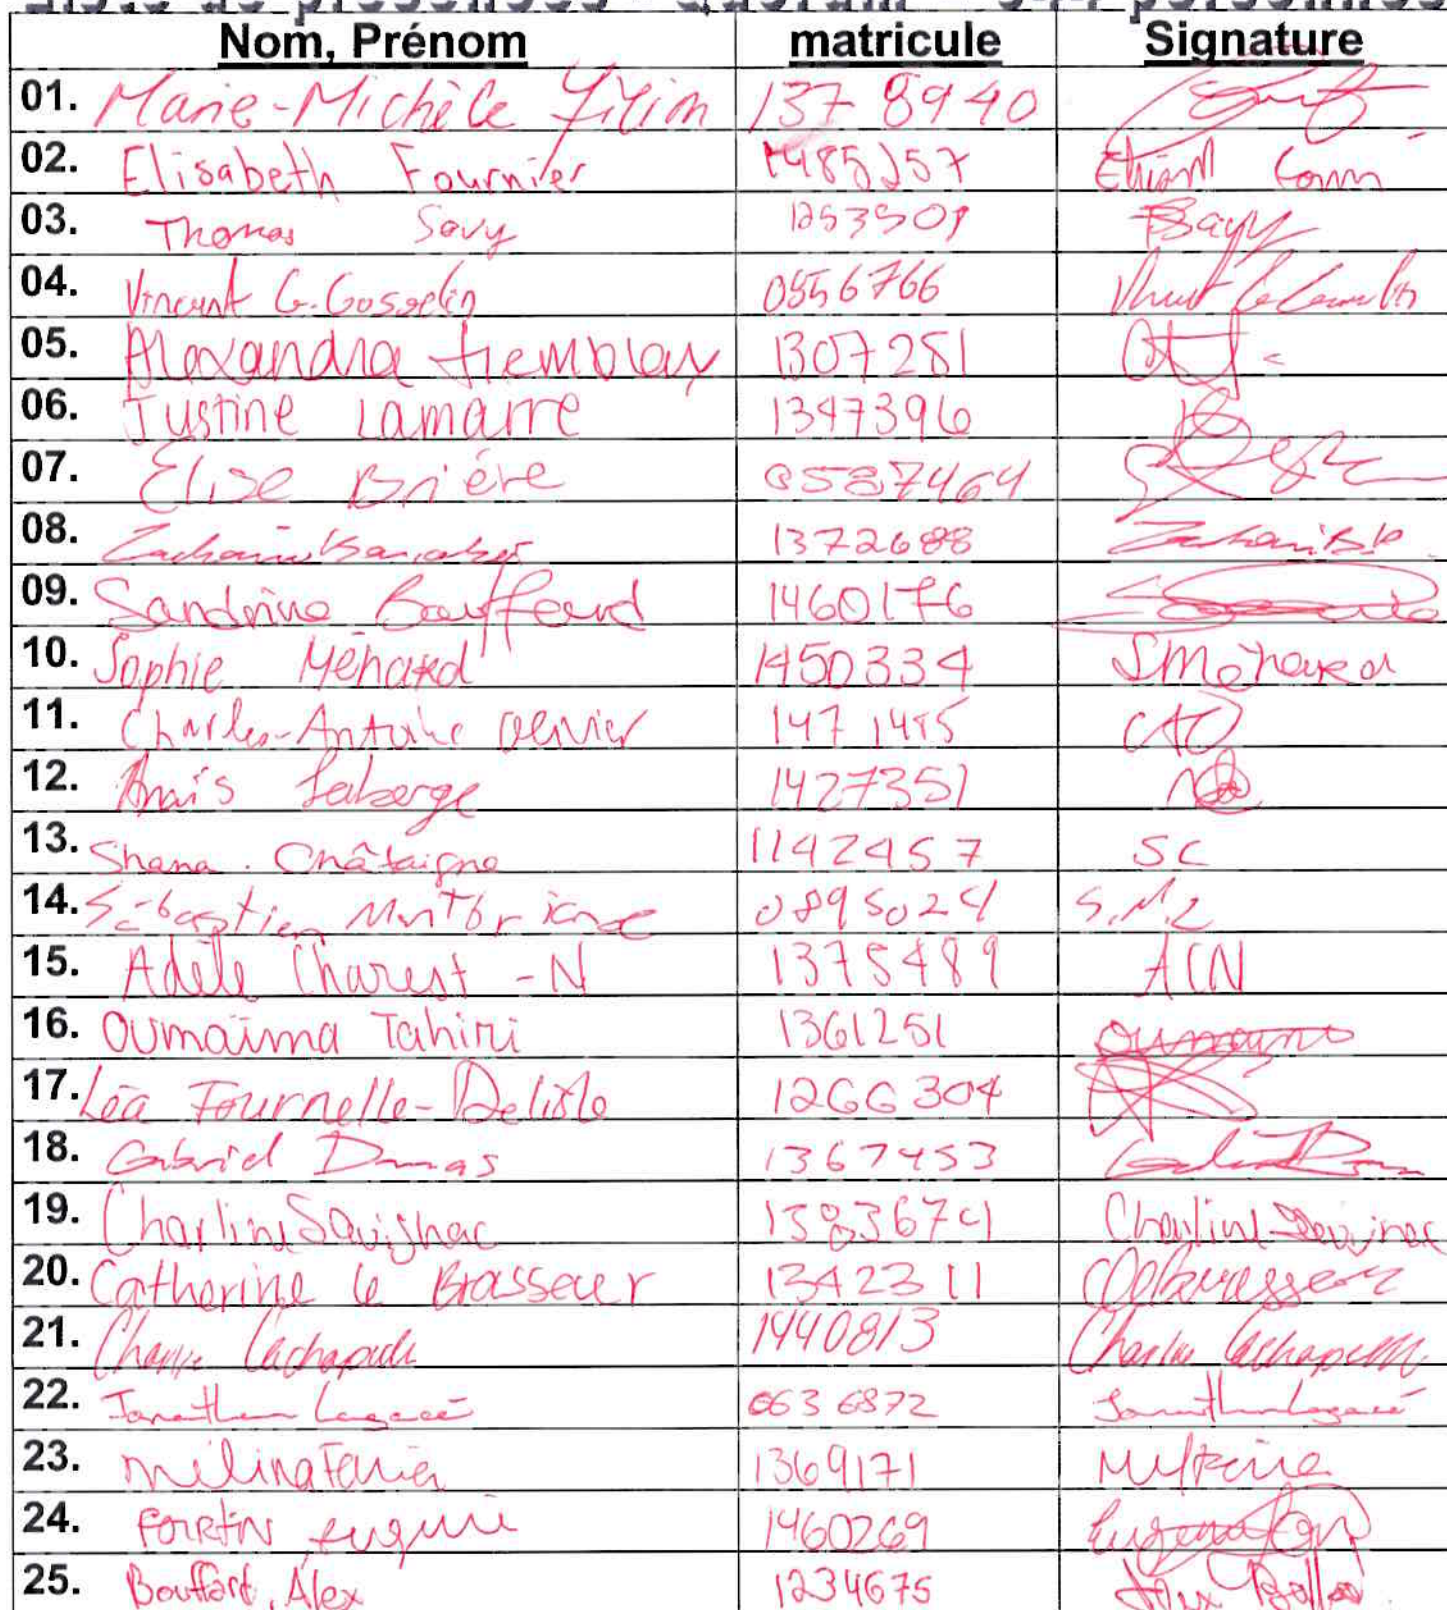 Liste de présences - Quorum
Nom, Prénom matricule Signature
01. Marie-Michèle 137 8940
02. Elisabeth Fournier 1485257
03. Thomas Savy 1253509
04. Vincent G.Gosselin 0556766
05. Alexandra tremblay 1307281
06. Justine Lamarre 1347396
07. Élise Brière 0587464
08. 1372688
09. Sandrine Bouffard 1460176
10. Sophie Ménard 1450334 SMénard
11. Charles-Antoine Olivier 1471485 CAO
12. Anaïs Laberge 1427351
13. Shana Châtaigne 1142457 SC
14. Sébastien 0895024
15. Adèle Charest -N 1375489 ACN
16. Oumaïma Tahiri 1361251
17. Léa Fournelle-Delisle 1266304
18. Gabriel Dumas 1367453
19. Charline Savignac 1383674 Charline Savignac
20. Catherine le Brasseur 1342311
21. Charlie Lachapelle 1440813 Charlie Lachapelle
22. Jonathan Lagacé 0636872 Jonathan Lagacé
23. Mélina Ferrier 1369171
24. FORTIN Eugénie 1460269
25. Bouffard, Alex 1234675 Alex